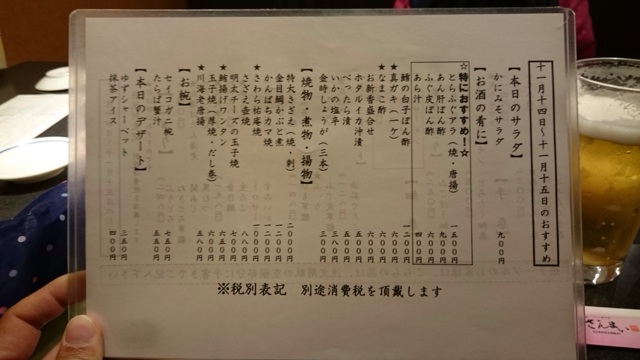 十一月十四日～十一月十五日のおすすめ
【本日のサラダ】
かにみそサラダ 九〇〇円
【お酒の肴に】
☆特におすすめ！☆
とらふぐアラ（焼・唐揚） 一五〇〇円
あん肝ぽん酢 九〇〇円
ふぐ皮ぽん酢 六〇〇円
あら汁 四〇〇円
鱈の白子ぽん酢 一二〇〇円
★真ホヤ
★なまこ酢
お新香盛合せ 六〇〇円
ホタルイカ沖漬 五〇〇円
べったら漬 五〇〇円
いかの塩辛 五〇〇円
金時しょうが（三本） 三〇〇円
【焼物・煮物・揚物】
特大さざえ（焼・刺） 二〇〇〇円
金目鯛かぶと煮
かんぱちカマ焼
★さわら祐庵焼
さざえ壷焼 八八〇円
明太チーズの玉子焼 七五〇円
★鯨揚げワンタン
玉子焼（厚焼・だし巻）
★川海老唐揚 五八〇円
【お椀】
セイコガニ椀 七五〇円
たらば蟹汁 五五〇円
【本日のデザート】
ゆずシャーベット 三五〇円
抹茶アイス 四〇〇円
※税別表記 別途消費税を頂戴します
さんまい